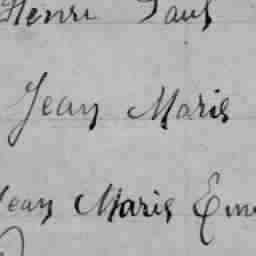 Henri Paul
Jean Marie
Jean Marie